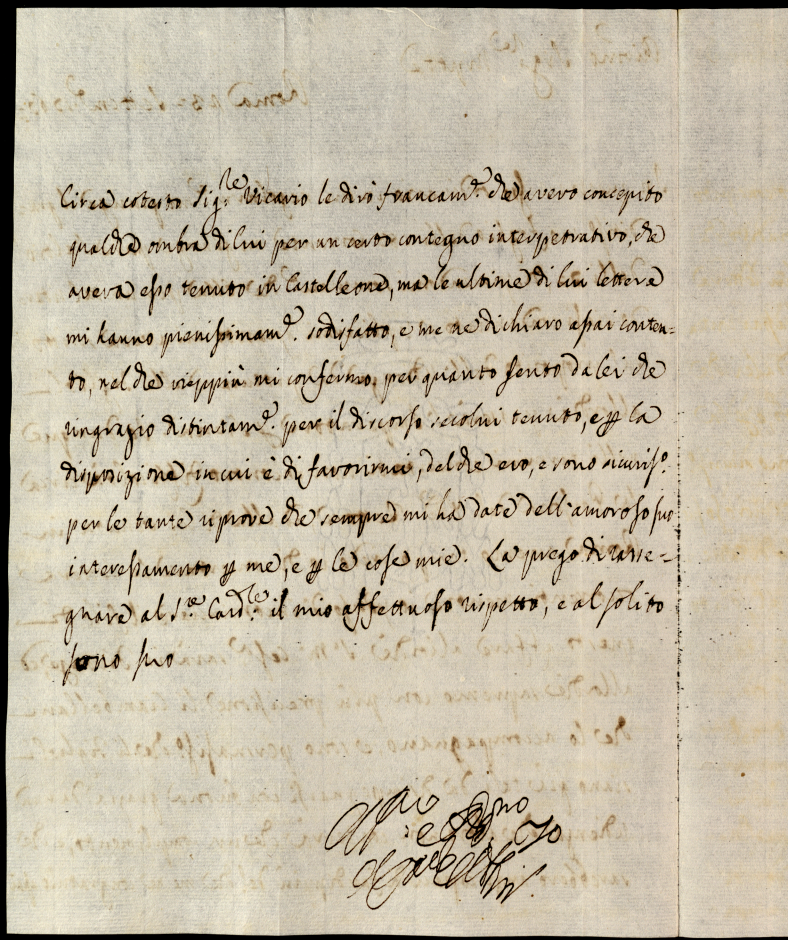 Circa cotesto Sig.re Vicario le dirò francam.e che avevo concepito
qualche ombra di lui per un certo contegno interpretrativo, che
aveva esso tenuto in Castelleone, ma le ultime di lui lettere
mi hanno pienissimam.e sodisfatto, e me ne dichiaro assai conten=
to, nel che vieppiù mi confermo per quanto sento da lei che
ringrazio distintam.e per il discorso secolui tenuto, e p la
disposizione in cui è di favorirmi, del che ero, e sono sicuriss.o
per le tante riprove che sempre mi ha date dell'amoroso suo
interessamento p me, e p le cose mie. La prego di rasse=
gnare al S.re Card.le il mio affettuoso rispetto, e al solito
sono suo